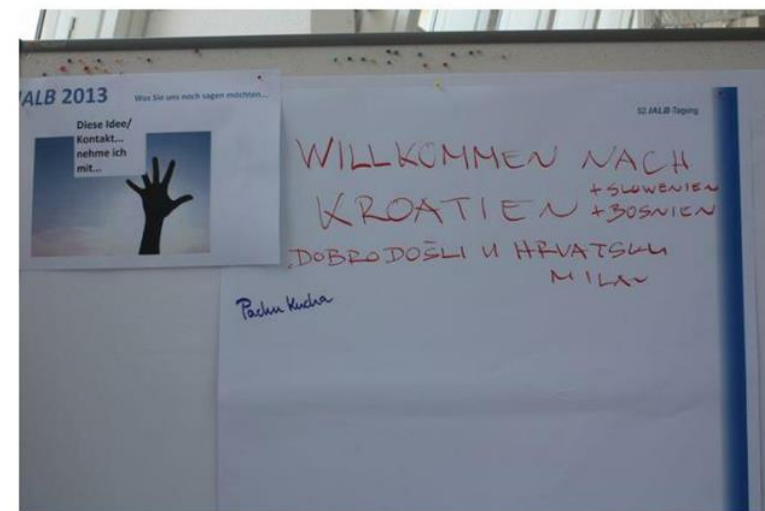 IALB 2013
Was Sie uns noch sagen möchten...
Diese Idee/
Kontakt...
nehme ich
mit...
52. IALB-Tagung
WILLKOMMEN NACH
KROATIEN
+ SLOWENIEN
+ BOSNIEN
DOBRO DOŠLI U HRVATSKU
MILAN
Pachu Kucha